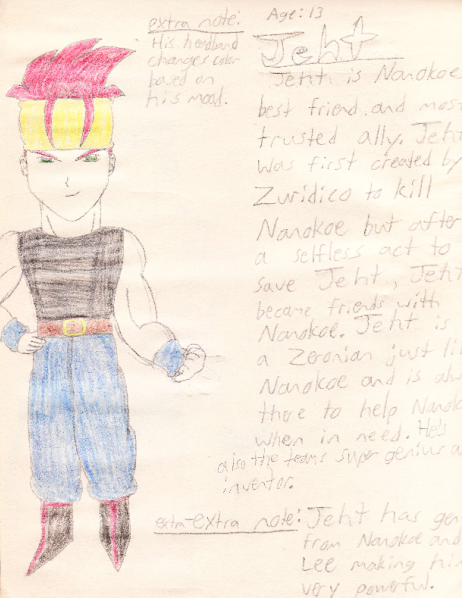 extra note:
His headband
changes color
based on
his mood.
Age: 13
Jeht
Jeht is Nanokoe
best friend and most
trusted ally. Jeht
was first created by
Zuridico to kill
Nanokoe but after
a selfless act to
save Jeht, Jeht
became friends with
Nanokoe. Jeht is
a Zeronian just li
Nanokoe and is alw
there to help Nanok
when in need. He's
also the teams super genius a
inventor.
extra-extra note: Jeht has gen
from Nanokoe and
Lee making hi
very powerful.